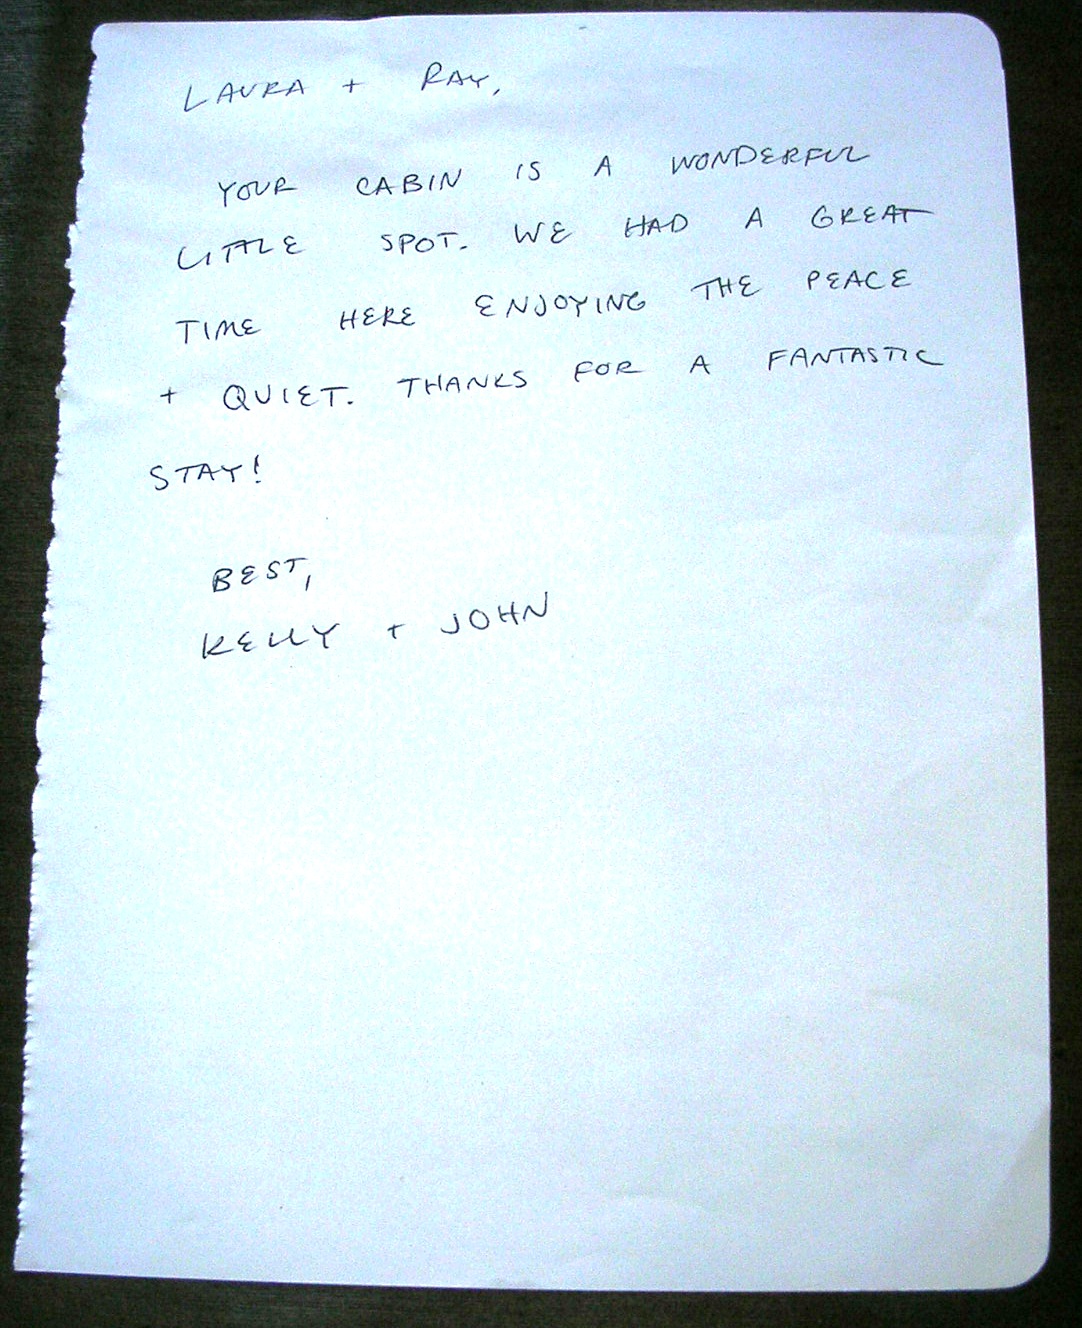 LAURA + RAY,
YOUR CABIN IS A WONDERFUL
LITTLE SPOT. WE HAD A GREAT
TIME HERE ENJOYING THE PEACE
+ QUIET. THANKS FOR A FANTASTIC
STAY!
BEST,
KELLY + JOHN